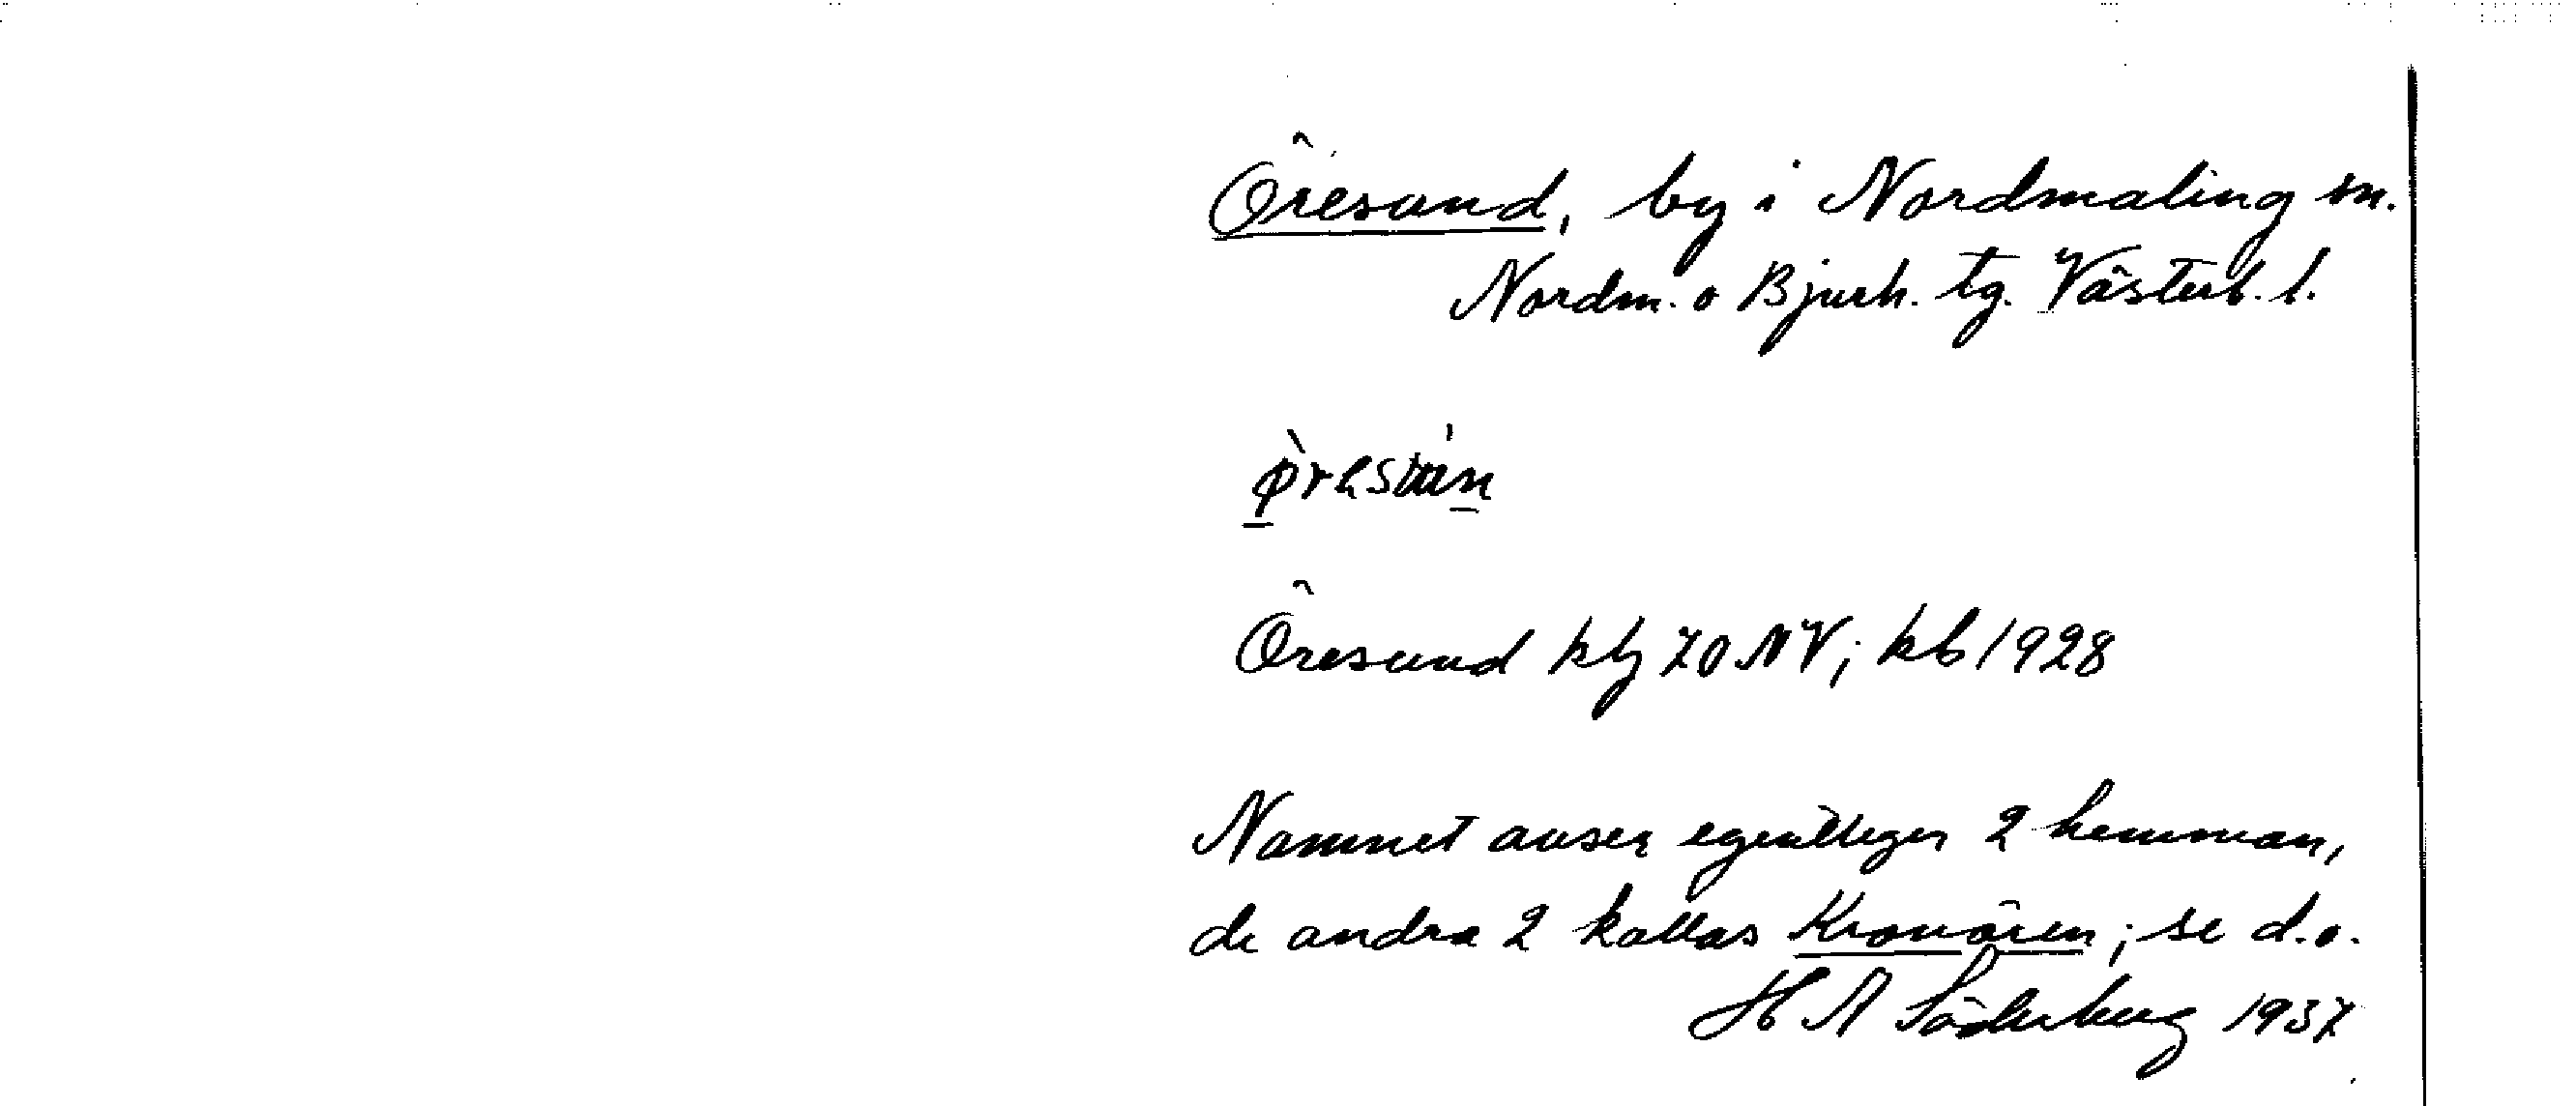 Öresund, by i Nordmaling sn.
Nordm. o Bjurh. tg. Västerb. l.
Öresund kbg 70 NV; kb 1928
Namnet avser egentligen 2 hemman,
de andra 2 kallas Kronören; se d.o.
H N Söderberg 1937